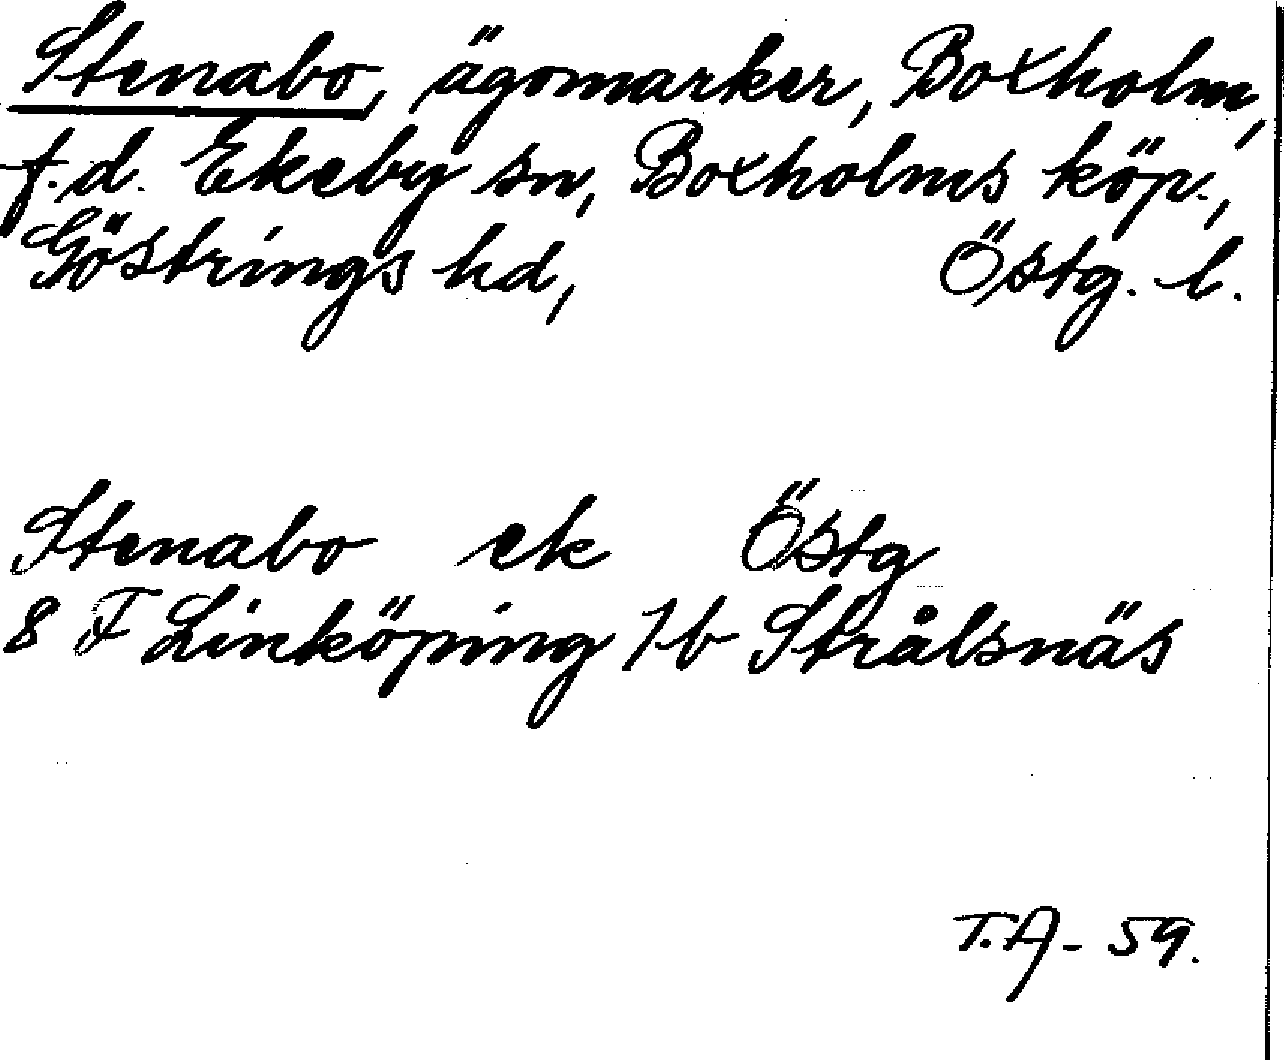 Stenabo, ägomarker, Boxholm,
f.d. Ekeby sn, Boxholms köp.,
Göstrings hd, Östg. l.
Stenabo ek Östg
8 F Linköping 1b Strålsnäs
T.A - 59.